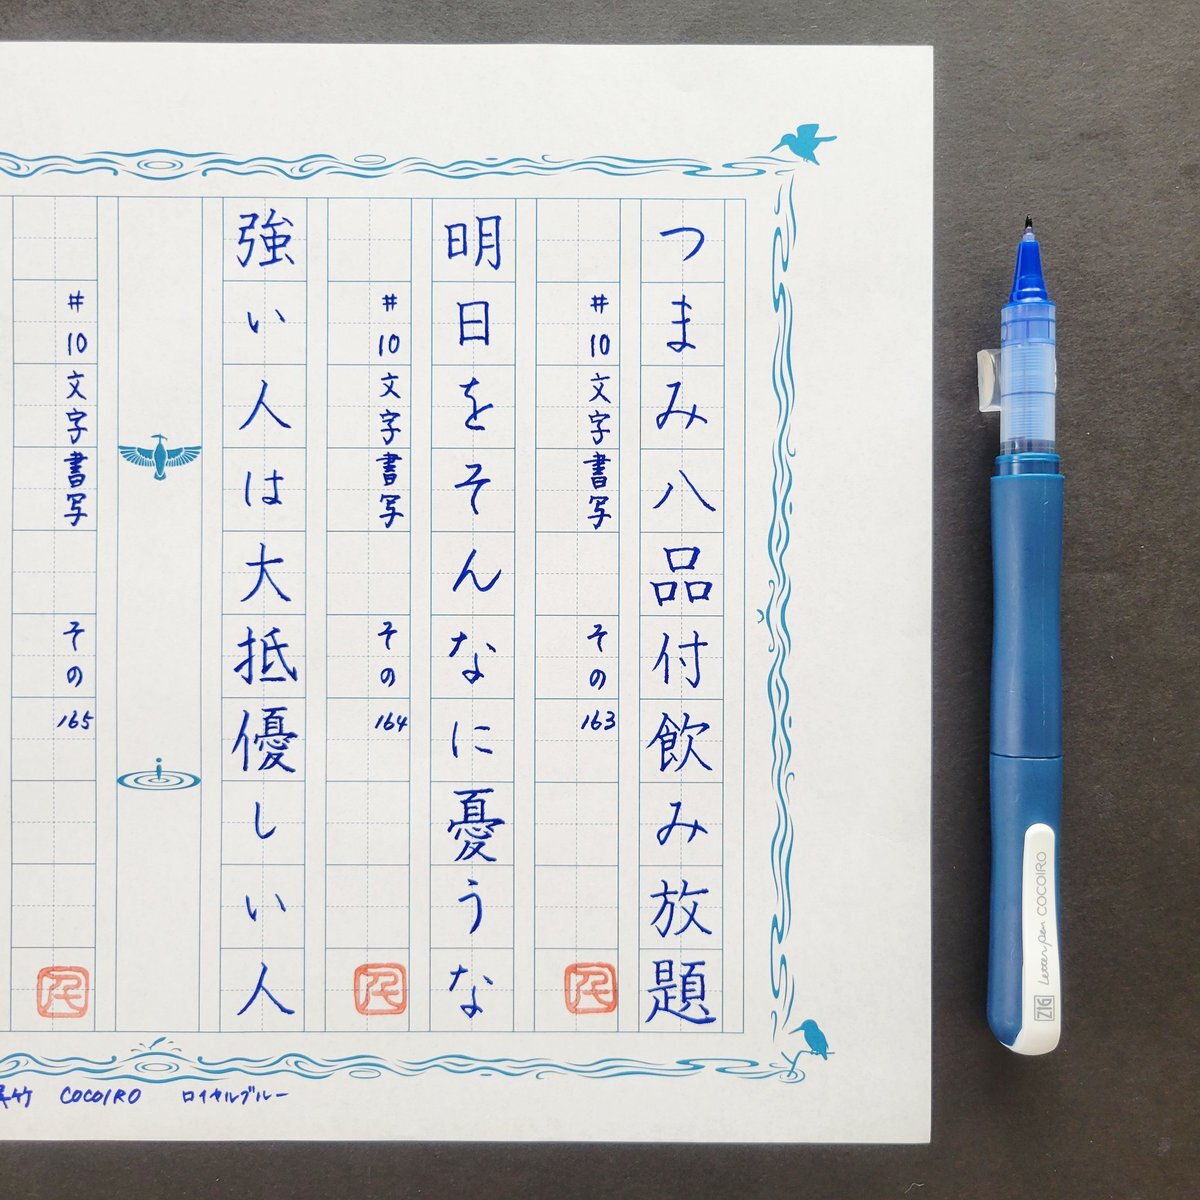 つまみ八品付飲み放題
#10文字書写 その163
明日をそんなに憂うな
#10文字書写 その164
強い人は大抵優しい人
#10文字書写 その165
呉竹 COCOIRO ロイヤルブルー
ZIG Letter pen COCOIRO